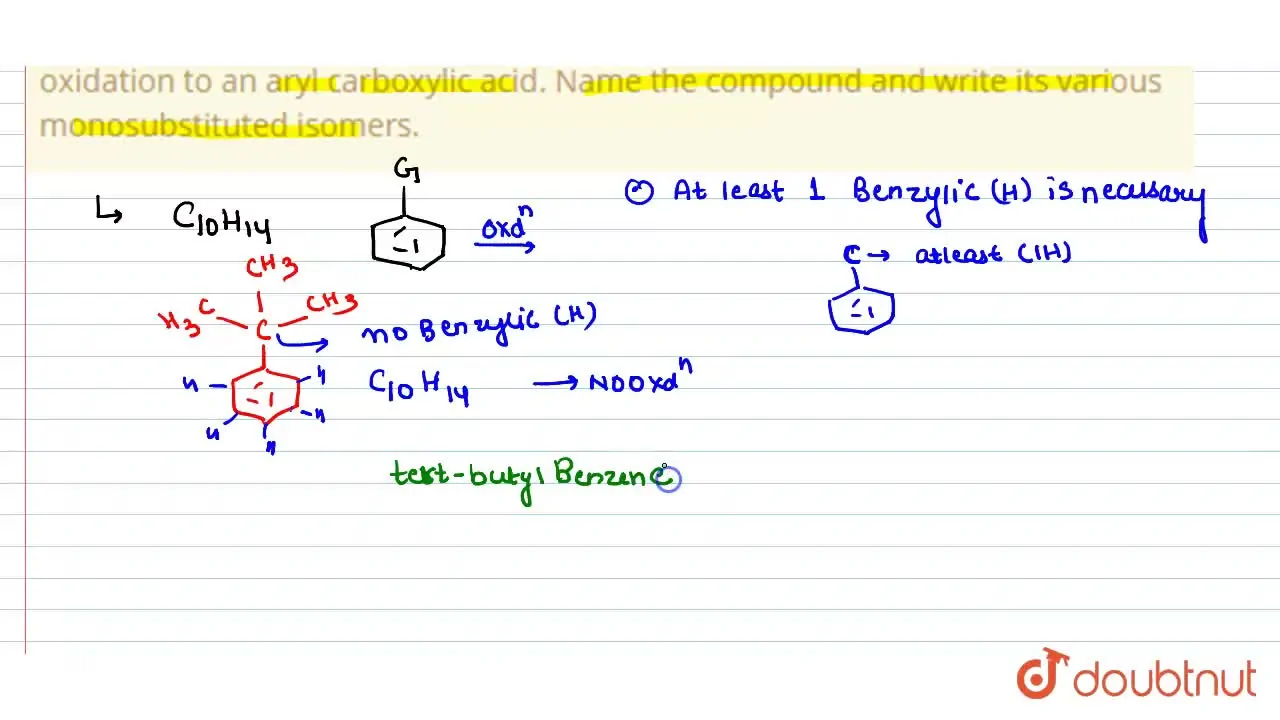 oxidation to an aryl carboxylic acid. Name the compound and write its various
monosubstituted isomers.
G
↳ C10H14
oxdⁿ
⊙ At least 1 Benzylic (H) is necessary
C → atleast (1H)
CH3
H3C
CH3
C
no Benzylic (H)
H H
C10H14 → NO Oxdⁿ
H H
H
tert-butyl Benzene
doubtnut